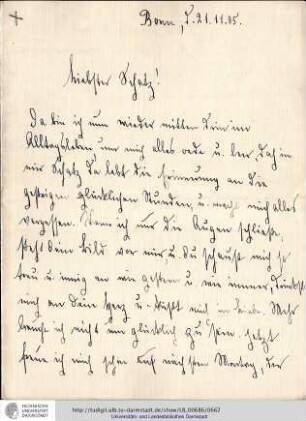 Bonn, d. 21.11.05.
Liebster Schatz!
Da bin ich nun wieder mitten drin im
Alltagsleben um mich alles oede u. leer, doch in
mir Schatz da lebt die Erinnerung an die
gestrigen glücklichen Stunden, u. macht mich alles
vergessen. Wenn ich nur die Augen schließe,
steht Dein Bild vor mir u. Du schaust mich so
treu u. innig an wie gestern u. wie immer,
mich an Dein Herz u. küßt mich in Liebe. Mehr
brauche ich nicht um glücklich zu sein. Jetzt
freue ich mich schon auf nächsten Montag, der
http://tudigit.ulb.tu-darmstadt.de/show/UL00686/0662
Universitäts- und Landesbibliothek Darmstadt